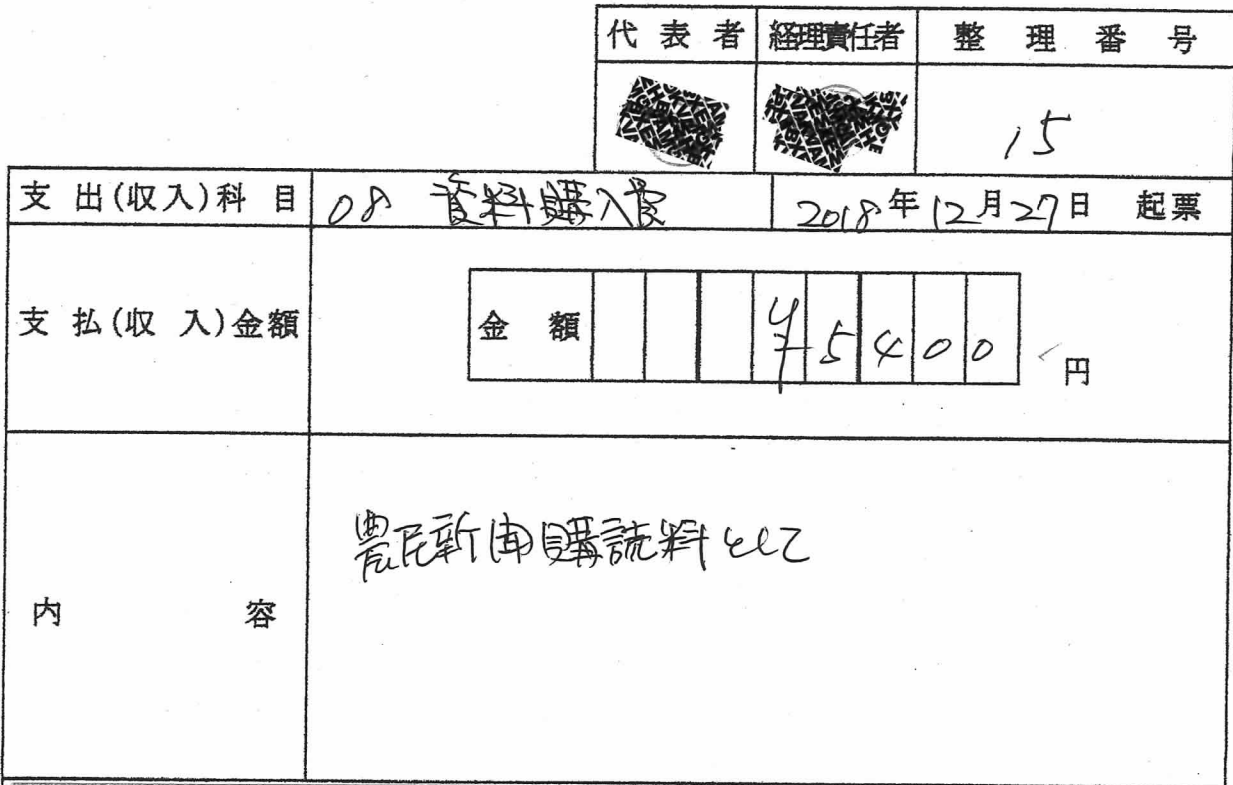 代表者 経理責任者 整理番号
15
支出(収入)科目 08 資料購入費 2018年12月27日 起票
支払(収入)金額 金額 ¥5400 円
内容 農民新聞購読料として